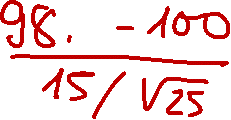 98. - 100
15 / √25